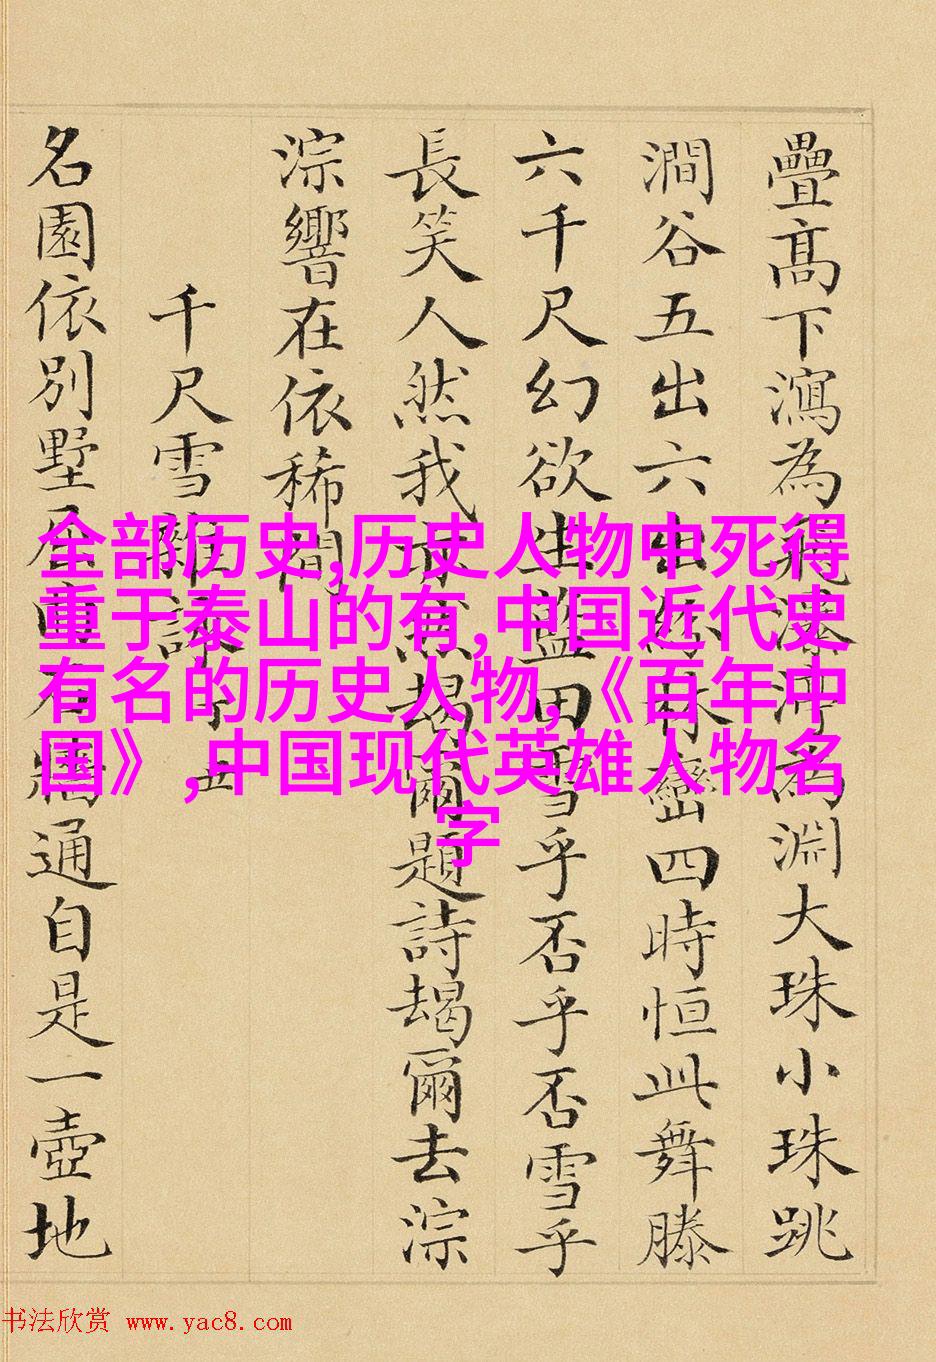 疊髙下瀉為飛瀑渟為淵大珠小珠跳
澗谷五出六出紛林巒四時恒此舞滕
六千尺幻欲生田雪乎否乎否雪乎
長笑人然我亦然朅爾題詩朅爾去淙
淙響在依稀間
千尺雪雜詠五
名園依別墅有牆通自是一壺地
全部历史,历史人物中死得
重于泰山的有,中国近代史
有名的历史人物,《百年中
国》,中国现代英雄人物名
字
书法欣赏 www.yac8.com